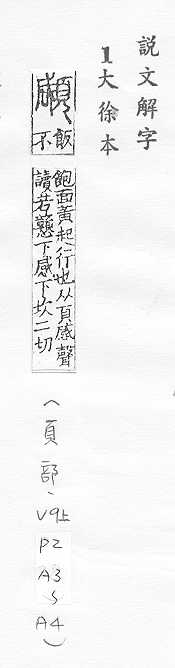 説文解字
1大徐本
顑
飯
不
飽面黃起行也从頁咸聲
讀若戇下感下坎二切
(頁部、V9上
P2
A3
~
A4)